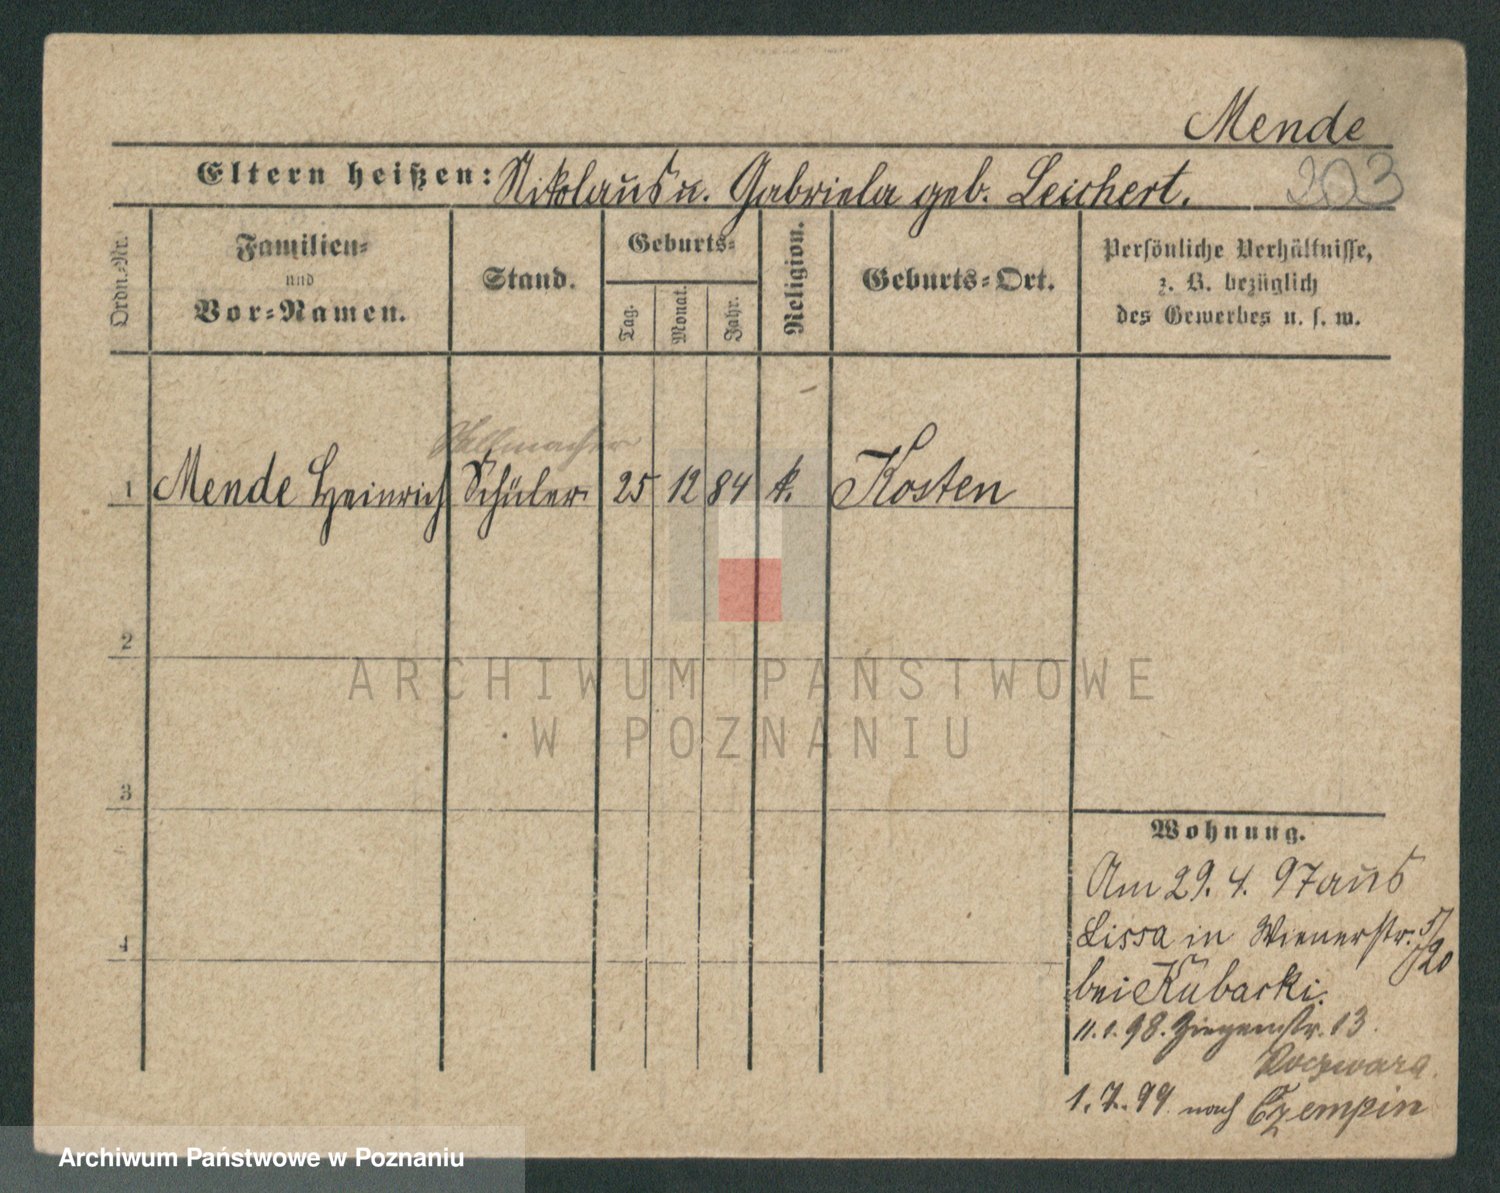 Mende
Eltern heißen: Nikolaus u. Gabriela geb. Leichert.
203
Ordn.-Nr.
Familien-
und
Vor-Namen.
Stand.
Geburts-
Tag.
Monat.
Jahr.
Religion.
Geburts-Ort.
Persönliche Verhältnisse,
z. B. bezüglich
des Gewerbes u. s. w.
Stellmacher
1 Mende Heinrich Schüler 25 12 84 k. Kosten
2
3
4
ARCHIWUM PAŃSTWOWE
W POZNANIU
Wohnung.
Am 29. 4. 97 aus
Lissa in Wienerstr. 5/
20
bei Kubacki.
11. 1. 98. Ziegenstr. 13.
1. 7. 99 nach Czempin
Archiwum Państwowe w Poznaniu